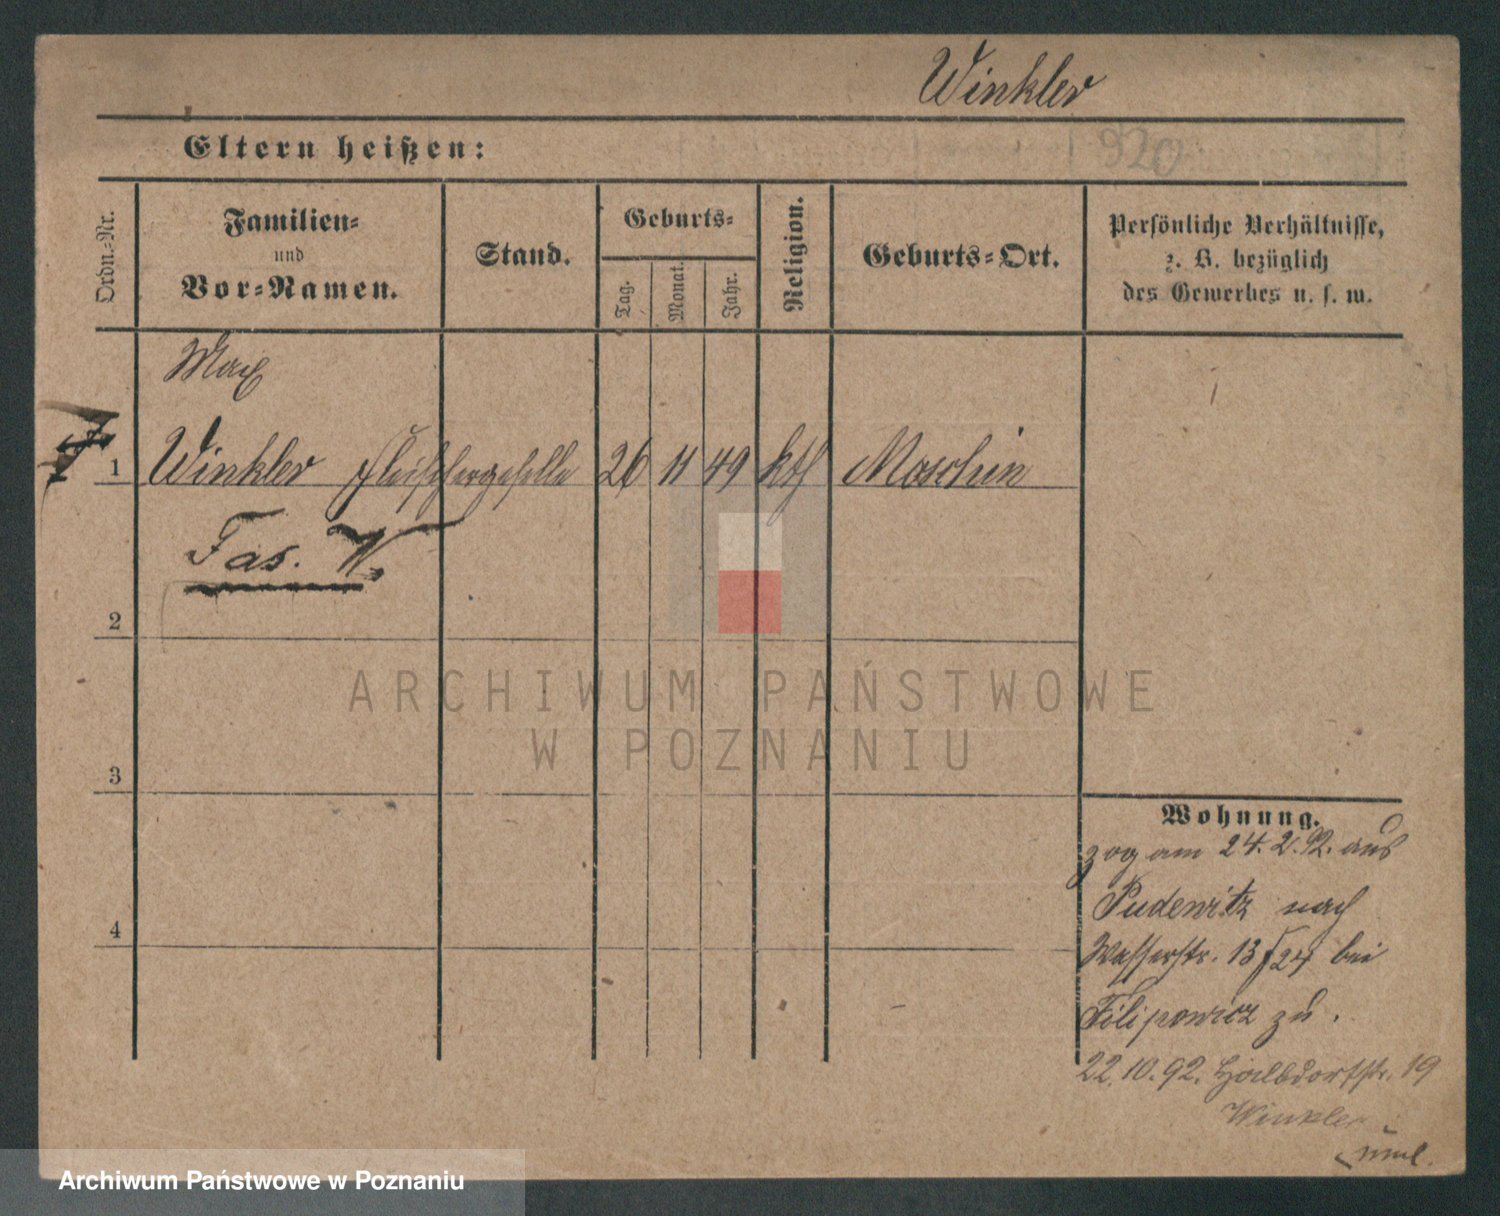 Winkler
Eltern heißen:
920
Ordn.-Nr.
Familien-
und
Vor-Namen.
Stand.
Geburts-
Tag.
Monat.
Jahr.
Religion.
Geburts-Ort.
Persönliche Verhältnisse,
z. B. bezüglich
des Gewerbes u. s. w.
Max
1 Winkler Fleischergeselle 26 11 49 kth Moschin
Fas. W.
2
3
4
Wohnung.
zog am 24. 2. 92. aus
Pudewitz nach
Wasserstr. 13/24 bei
Filipowicz zu.
22.10.92. Halbdorfstr. 19
Winkler
ARCHIWUM PAŃSTWOWE
W POZNANIU
Archiwum Państwowe w Poznaniu